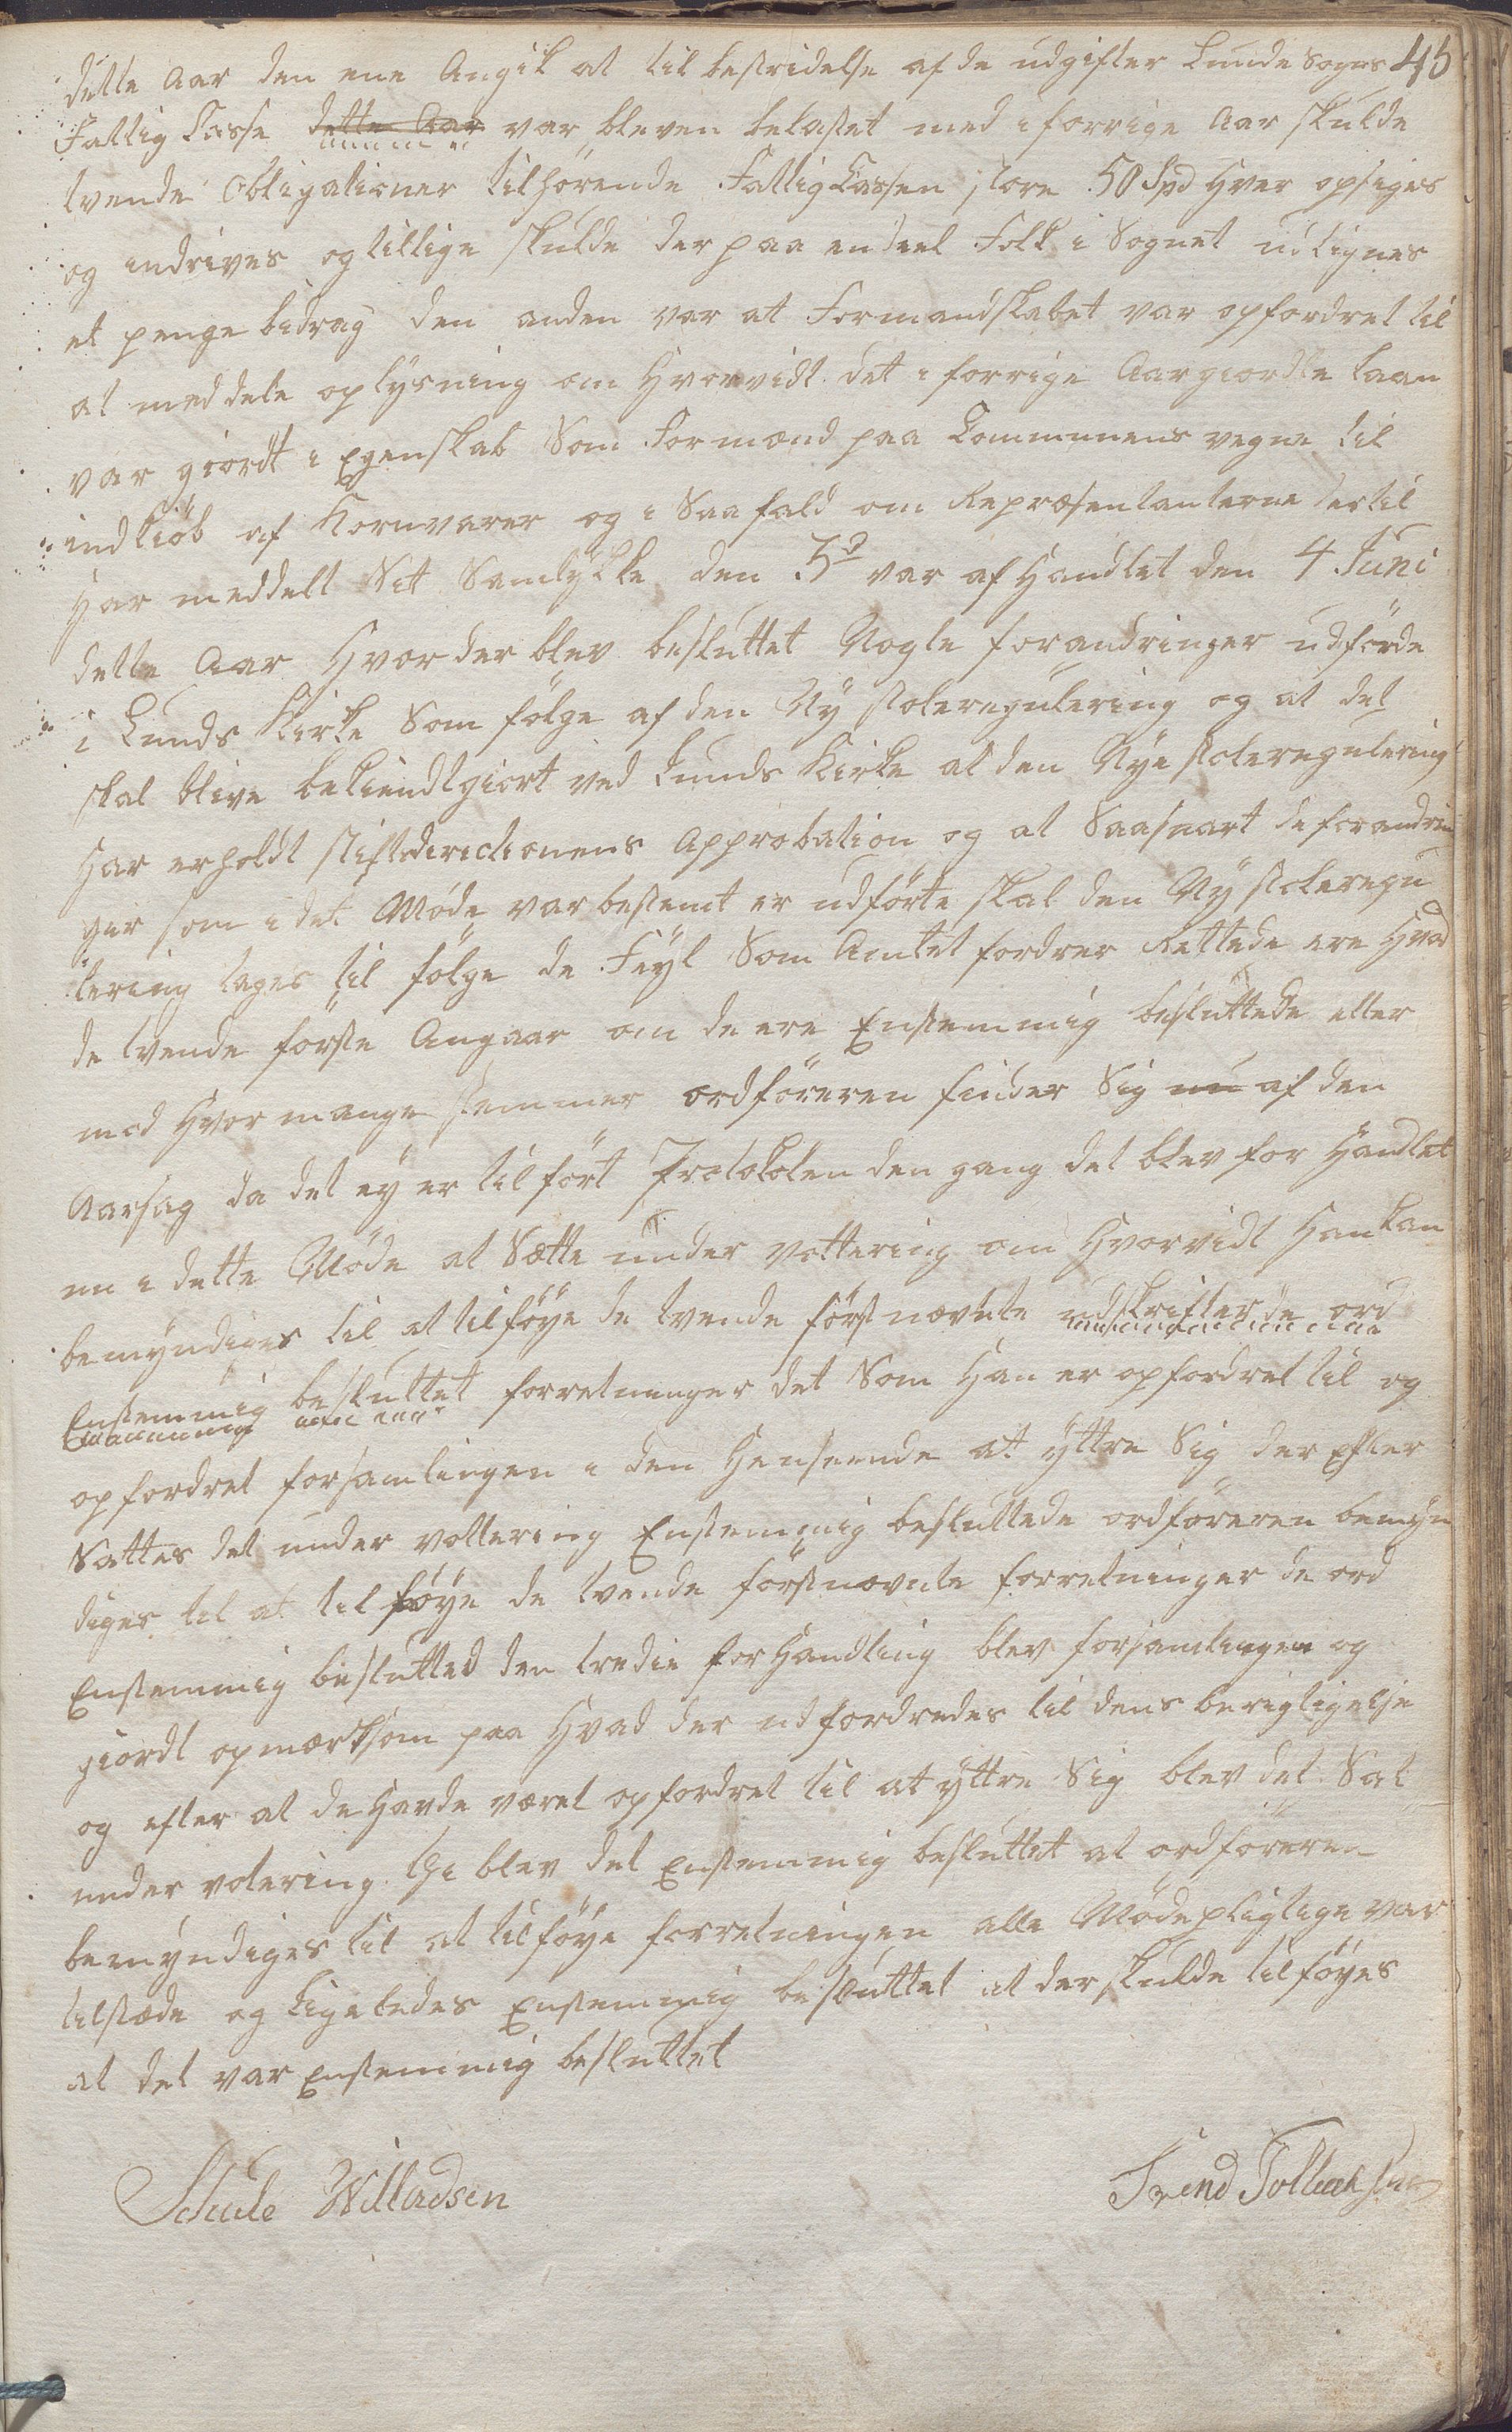 45
dette Aar den ene Angik at til bestridelse af de udgifter Lunde Sogns
Fattig Casse dette Aar var bleven belastet med i forrige Aar skulde
tvende Obligationer tilhörende FattigCassen store 50 Spd Hver opsiges
og indrives og tillige skulde der paa en deel Folk i Sognet udlignes
et penge bidrag den anden var at Formandskabet var opfordret til
at meddele oplysning om Hvorvidt det i forrige Aar giordte laan
var giordt i Egenskab Som Formænd paa Communens vegne til
indkiöb af Kornvarer og i Saafald om Repræsentanterne dertil
Har meddelt Sit Samtÿkke den 3d var af Handlet den 4 Juni
dette Aar Hvor der blev besluttet Nogle forandringer udförde
i Lunds Kirke Som fölge af den Nÿ stoleregulering og at det
skal blive bekiendtgiort ved Lunds Kirke at den Nÿe stoleregulering
Har erholdt stiftsdirectionens Approbation og at Saasnart de forandrin
ger som i det Möde var bestemt er udförte skal den Nÿ stoleregu
lering tages til fölge de Feÿl Som Amtet fordrer Rettede ere Hvad
de tvende förste Angaar om de ere Enstemmig besluttede eller
med Hvor mange stemmer ordföreren finder Sig nu af den
Aarsag da det eÿ er tilfört Protokolen den gang det blev for Handlet
nu i dette Möde at Sætte under vottering om Hvorvidt Han kan
bemÿndiges til at tilföÿe de tvende förstnævnte udskrifter de ord
Enstemmig besluttet forretninger det Som Han er opfordret til og
opfordret forsamlingen i den Henseende at ÿttre Sig der Efter
Sattes det under vottering Enstemmig besluttede ordföreren bemÿn
diges til at til föÿe de tvende förstnævnte forretninger de ord
Enstemmig besluttet den tredie forHandling blev forsamlingen og
giordt opmærksom paa Hvad der udfordredes til dens berigtigelse
og efter at de Havde været opfordret til at ÿttre Sig blev det Sat
under votering blev det Enstemmig besluttet at ordföreren
bemÿndiges til at tilföÿe forretningen alle Mödepligtige var
tilstæde og ligeledes Enstemmig besluttet at der skulde tilföÿes
at det var Enstemmig besluttet
Villadsen
Trend Tollachsen